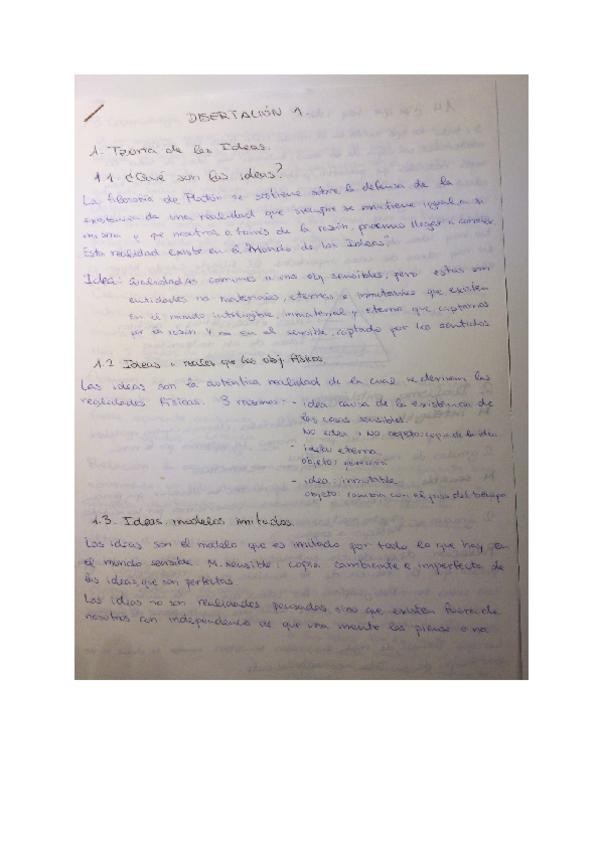 DISERTACIÓN 1
1- Teoría de las Ideas.
1.1. ¿Qué son las ideas?
La filosofía de Platón se sostiene sobre la defensa de la
existencia de una realidad que siempre se mantiene igual a si
misma y que nosotros a través de la razón, podemos llegar a conocer.
Esta realidad existe en el "Mundo de las Ideas"
Idea: cualidades comunes a una obj. sensibles, pero estas son
entidades no materiales, eternas e inmutables que existen
en el mundo inteligible, inmaterial y eterno que captamos
por la razón y no en el sensible, captado por los sentidos
1.2 Ideas + reales que los obj. físicos
Las ideas son la auténtica realidad de la cual se derivan las
realidades físicas. 3 razones: - idea causa de la existencia de
las cosas sensibles.
No idea → No objeto: copia de la idea
- idea: eterna
objeto: perecerá
- idea: inmutable
objeto: cambia con el paso del tiempo
1.3. Ideas, modelos imitados.
Las ideas son el modelo que es imitado por todo lo que hay en
el mundo sensible. M. sensible: copia cambiante e imperfecta de
las ideas, que son perfectas.
Las ideas no son realidades pensadas sino que existen fuera de
nosotros con independencia de que una mente las piense o no